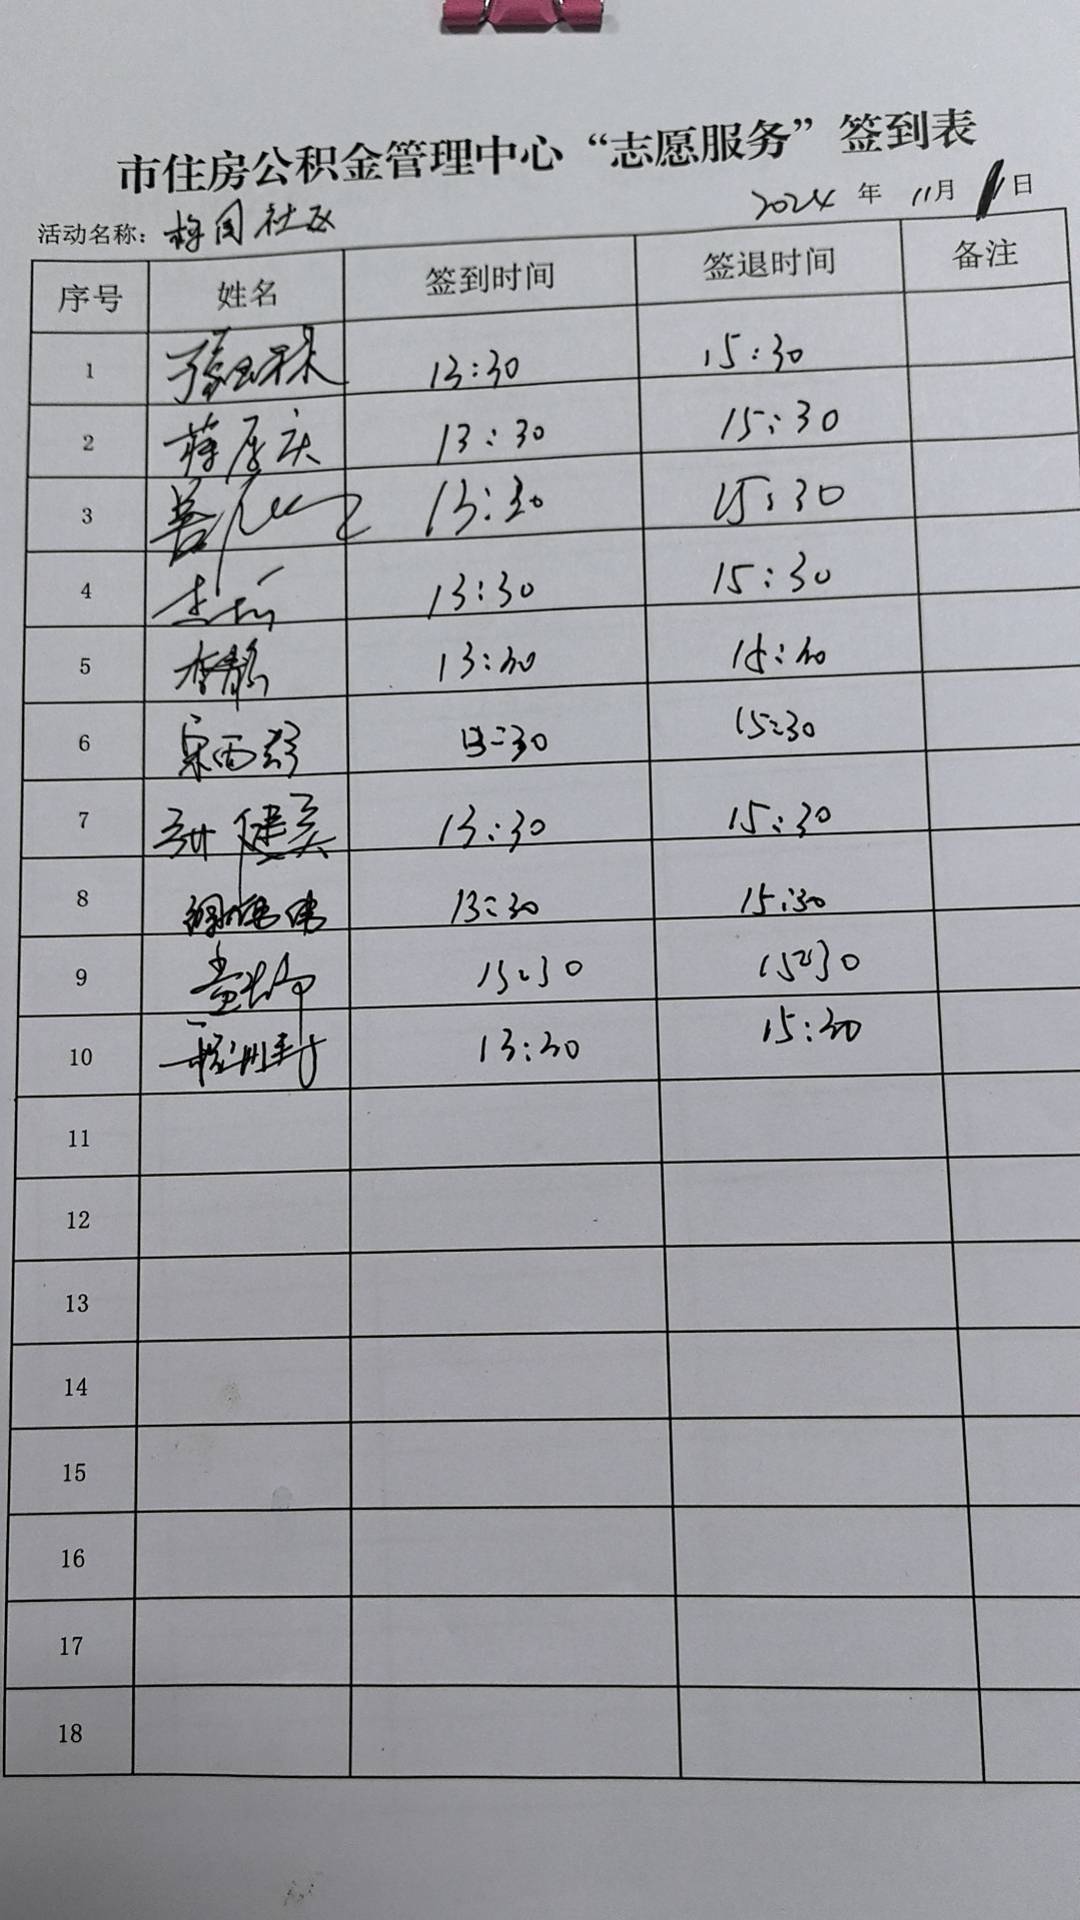 市住房公积金管理中心“志愿服务”签到表
活动名称: 梅园社区 2024 年 11月 日
序号 姓名 签到时间 签退时间 备注
1 13:30 15:30
2 蒋厚庆 13:30 15:30
3 13:30 15:30
4 13:30 15:30
5 李静 13:30 15:30
6 宋西 13:30 15:30
7 健美 13:30 15:30
8 13:30 15:30
9 13:30 15:30
10 13:30 15:30
11
12
13
14
15
16
17
18